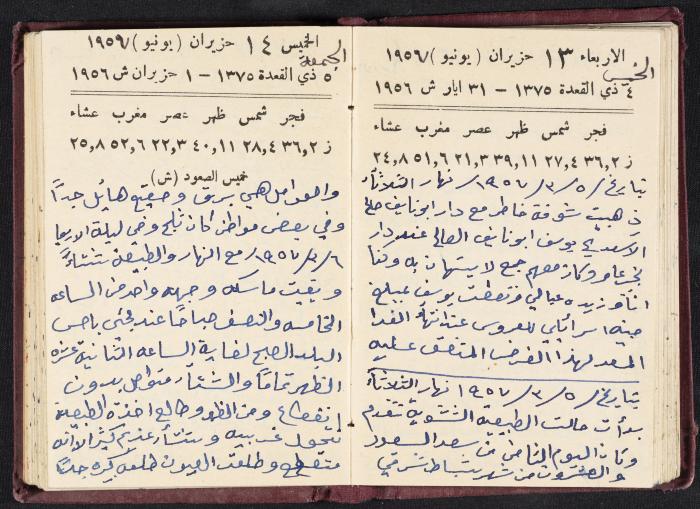 الاربعاء ١٣ حزيران (يونيو) ١٩٥٦/٧
الخميس
٤ ذي القعدة ١٣٧٥ – ٣١ ايار ش ١٩٥٦
فجر شمس ظهر عصر مغرب عشاء
ز ٣٦,٢ ٢٧,٤ ٣٩,١١ ٢١,٣ ٥١,٦ ٢٤,٨
بتاريخ ٥/٣/١٩٥٧ نهار الثلاثاء
ذهبت شوفة خاطر مع دار ابو نايف
الاسعد يوسف ابو نايف الصالح عند دار
عامر وكان معهم جمع لا يستهان به وكنا
انا وزيده عيالي وتنقطت يوسف بمبلغ
جنيه اسرائيلي للعروس عند انتهاء الغدا
المعد لهذا الفرض المتفق عليه
بتاريخ ٥/٣/١٩٥٧ نهار الثلاثاء
بدأت حالت الطبيعة الشتوية تتقدم
وكان اليوم الثامن من سعد السعود
والعشرون من شهر شباط شرقي
الخميس ١٤ حزيران (يونيو) ١٩٥٦/٧
الجمعة
٥ ذي القعدة ١٣٧٥ – ١ حزيران ش ١٩٥٦
فجر شمس ظهر عصر مغرب عشاء
ز ٣٦,٢ ٢٨,٤ ٤٠,١١ ٢٢,٣ ٥٢,٦ ٢٥,٨
خميس الصعود (ش)
والعوامل هي برق وصقيع هايل جداً
وفي بعض مواطن كان ثلج وفي ليلة الاربعا
٦/٣/١٩٥٧ مع النهار والطبيعة شتاءً
وبقيت ماسكه وجهه واحد من الساعه
الخامسه والنصف صباحاً عند مجئي باص
البلد الصبح لغاية الساعه الثانية عشره
الظهر تماماً والشتاء متواصل بدون
انقطاع ومن الظهر وطالع اخذة الطبيعة
تتحول غربيه وشتاء غزير كثير الا انه
متقطع وطلعت العيون طلعه كبيره جداً